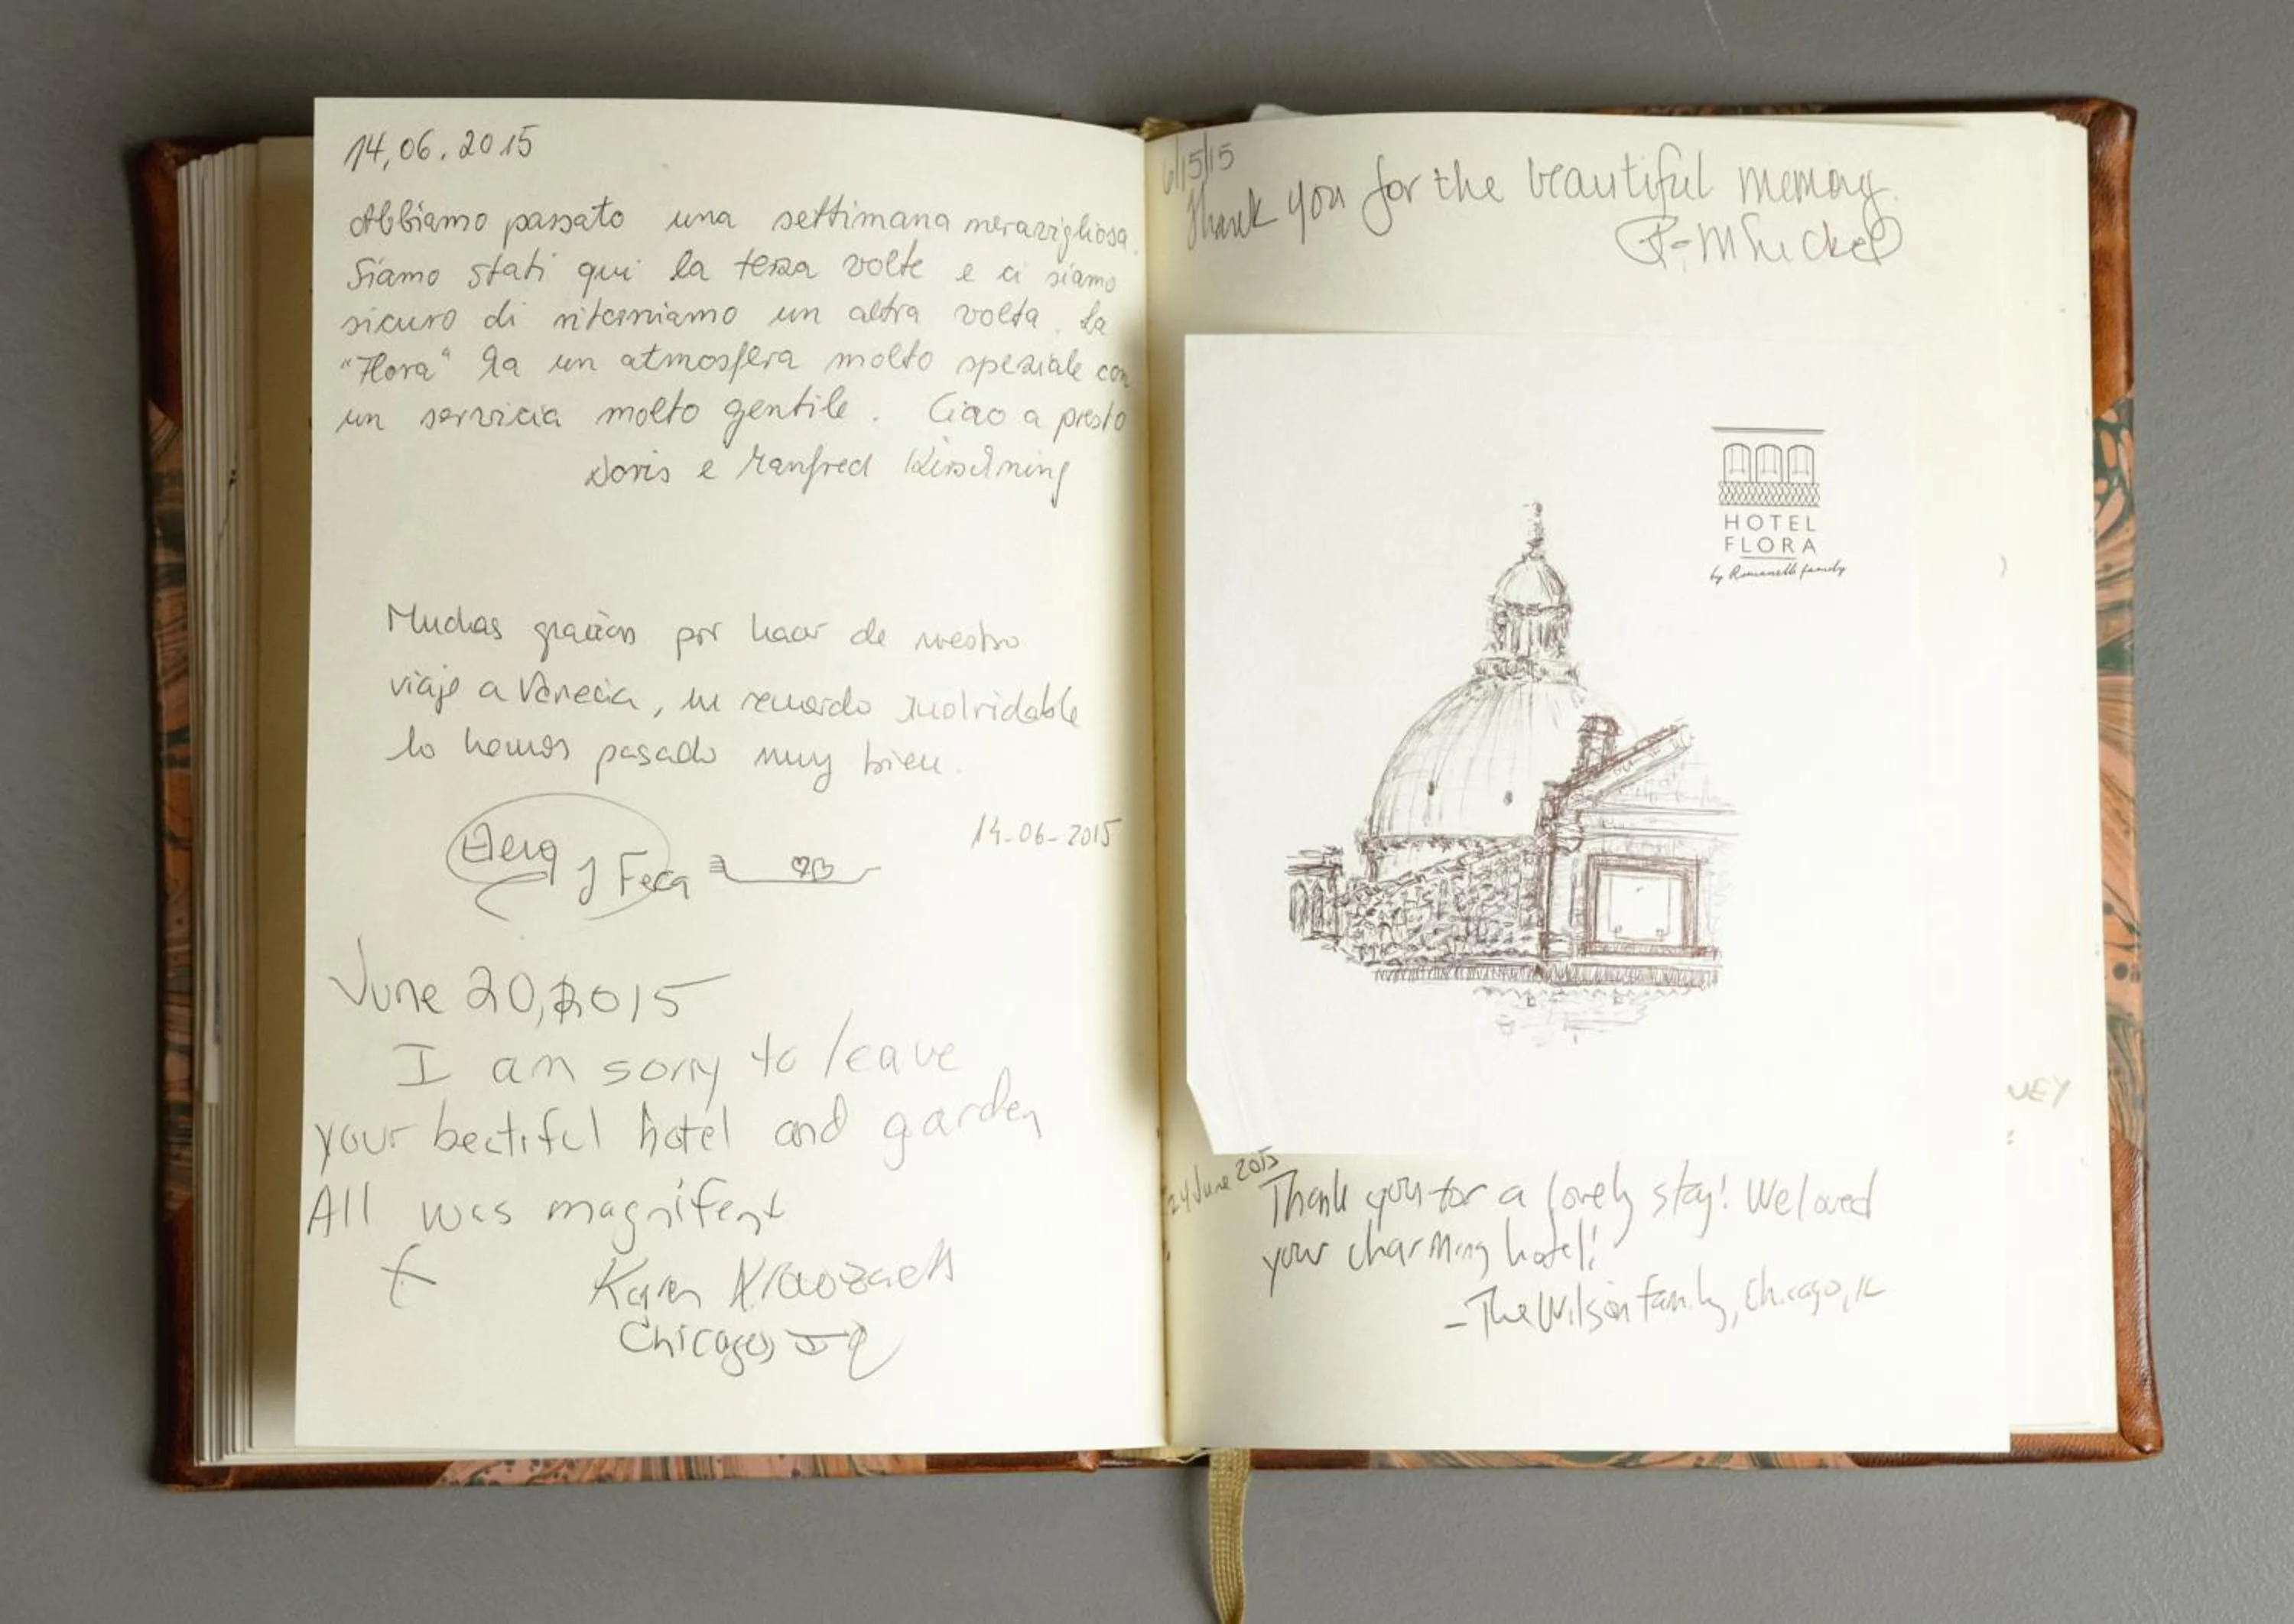 14.06.2015
Abbiamo passato una settimana meravigliosa.
Siamo stati qui la terza volte e ci siamo
sicuro di ritorniamo un altra volta. La
"Flora" ha un atmosfera molto speziale con
un servicia molto gentile. Ciao a presto
Doris e Manfred Kirschning
Muchas gracias por hacer de nuestro
viaje a Venecia, un recuerdo inolvidable
lo hemos pasado muy bien.
14-06-2015
y
June 20, 2015
I am sorry to leave
your bectiful hotel and garden
All was magnifent
Karen
Chicago,
6/15/15
Thank you for the beautiful memory.
HOTEL
FLORA
by Romanelli family
NEY
24 June 2015
Thank you for a lovely stay! We loved
your charming hotel!
- The Wilson Family, Chicago, IL